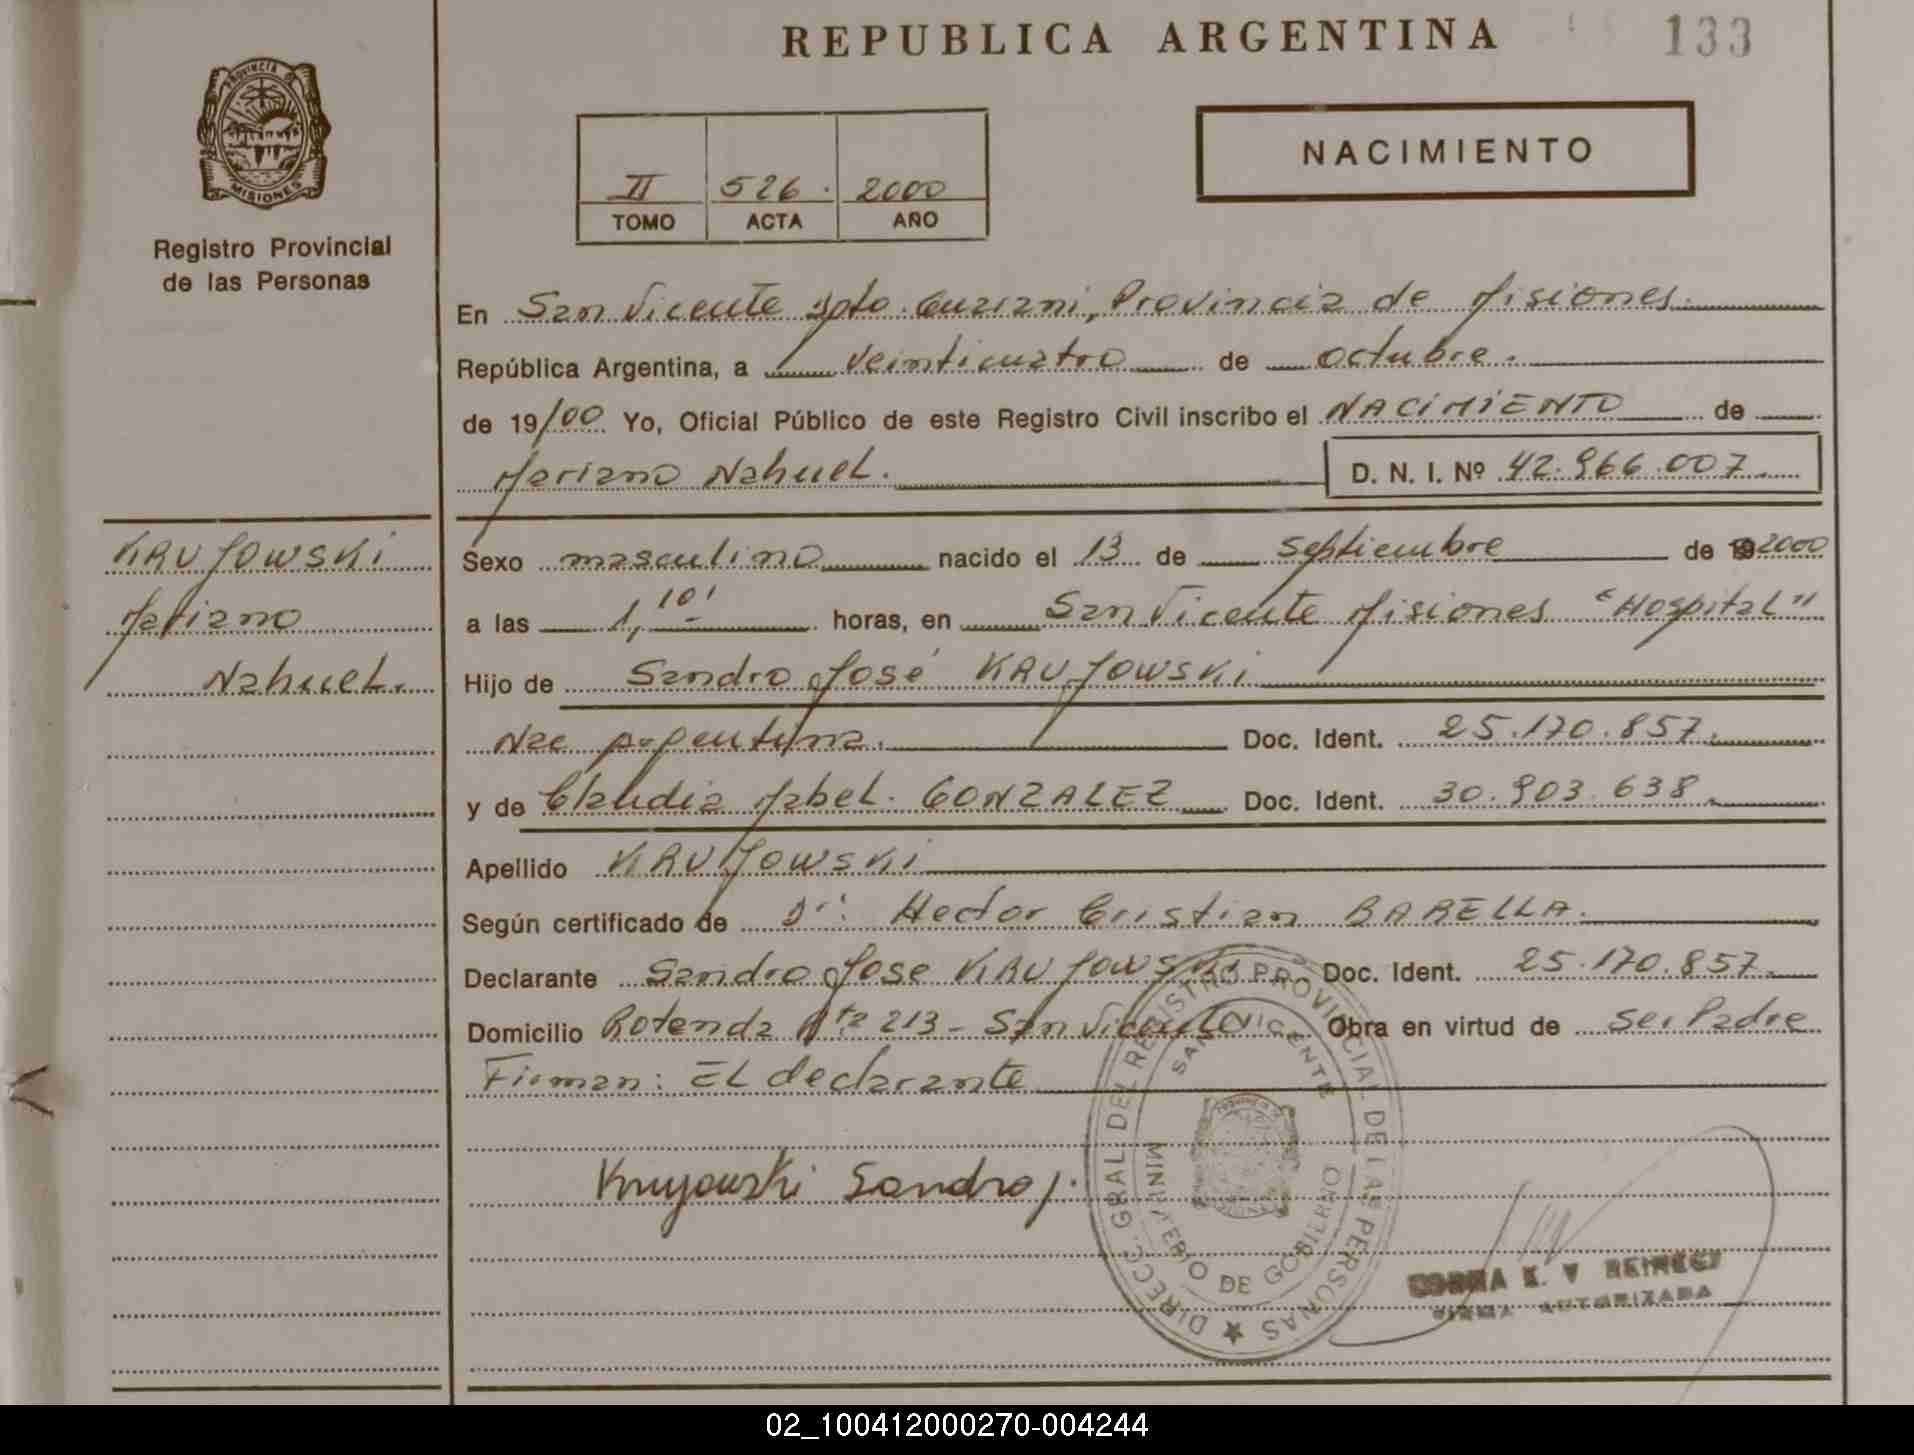 REPUBLICA ARGENTINA
133
PROVINCIA D
MISIONES
Registro Provincial
de las Personas
NACIMIENTO
II 526. 2000
TOMO ACTA AÑO
En San Vicente Dpto. Guaraní, Provincia de Misiones.
República Argentina, a veinticuatro de octubre.
de 19/00 Yo, Oficial Público de este Registro Civil inscribo el NACIMIENTO de
Mariano Nahuel. D. N. I. Nº 42.966.007
KRUJOWSKI
Mariano
Nahuel.
Sexo masculino nacido el 13 de septiembre de 19 2000
a las 1,10' horas, en San Vicente Misiones "Hospital"
Hijo de Sandro José KRUJOWSKI
Nac Argentina. Doc. Ident. 25.170.857.
y de Claudia Mabel. GONZALEZ Doc. Ident. 30.903.638.
Apellido KRUJOWSKI
Según certificado de Dr: Hector Cristian BARELLA.
Declarante Sandro Jose KRUJOWSKI Doc. Ident. 25.170.857
Domicilio Rotonda Rta 213 - San Vicente Obra en virtud de ser Padre
Firman: EL declarante
Krujowski Sandro J.
DIRECC. GRAL. DEL REGISTRO PROVINCIAL DE LAS PERSONAS
SAN VICENTE
MINISTERIO DE GOBIERNO
E. V
FIRMA AUTORIZADA
02_100412000270-004244